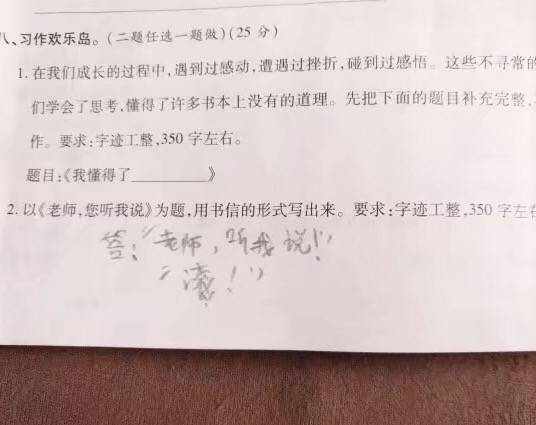 八、习作欢乐岛。(二题任选一题做)(25 分)
1. 在我们成长的过程中,遇到过感动,遭遇过挫折,碰到过感悟。这些不寻常的
们学会了思考,懂得了许多书本上没有的道理。先把下面的题目补充完整,
作。要求:字迹工整,350 字左右。
题目:《我懂得了________》
2. 以《老师,您听我说》为题,用书信的形式写出来。要求:字迹工整,350 字左右
答:“老师,听我说!”
“滚!”